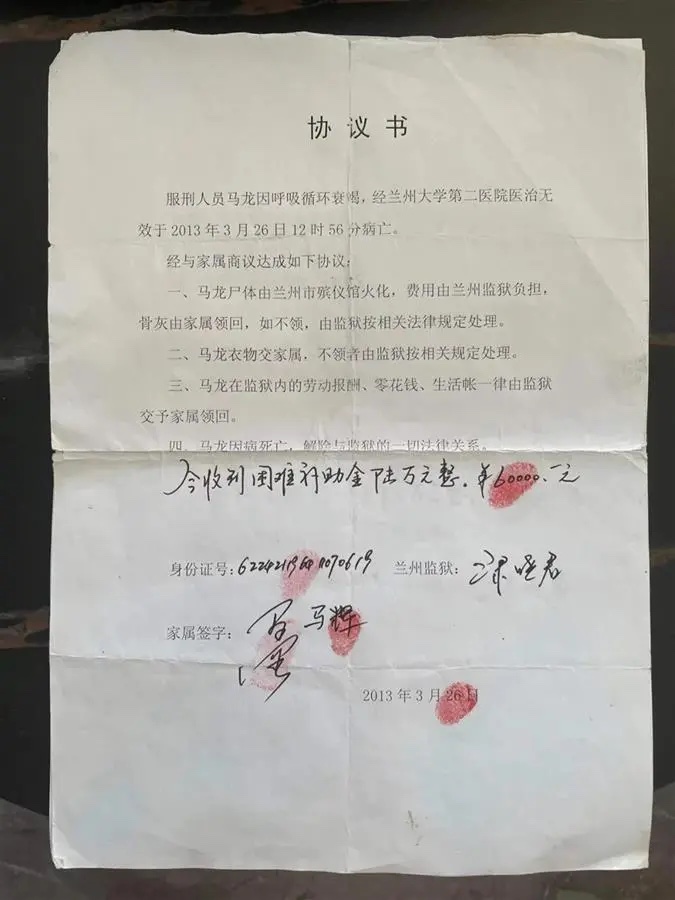 协议书
服刑人员马龙因呼吸循环衰竭，经兰州大学第二医院医治无
效于2013年3月26日12时56分病亡。
经与家属商议达成如下协议：
一、马龙尸体由兰州市殡仪馆火化，费用由兰州监狱负担，
骨灰由家属领回，如不领，由监狱按相关法律规定处理。
二、马龙衣物交家属，不领者由监狱按相关规定处理。
三、马龙在监狱内的劳动报酬、零花钱、生活帐一律由监狱
交予家属领回。
四、马龙因病死亡，解除与监狱的一切法律关系。
今收到困难补助金陆万元整。¥60000.一元
身份证号： 兰州监狱：
家属签字： 马辉
2013年3月26日